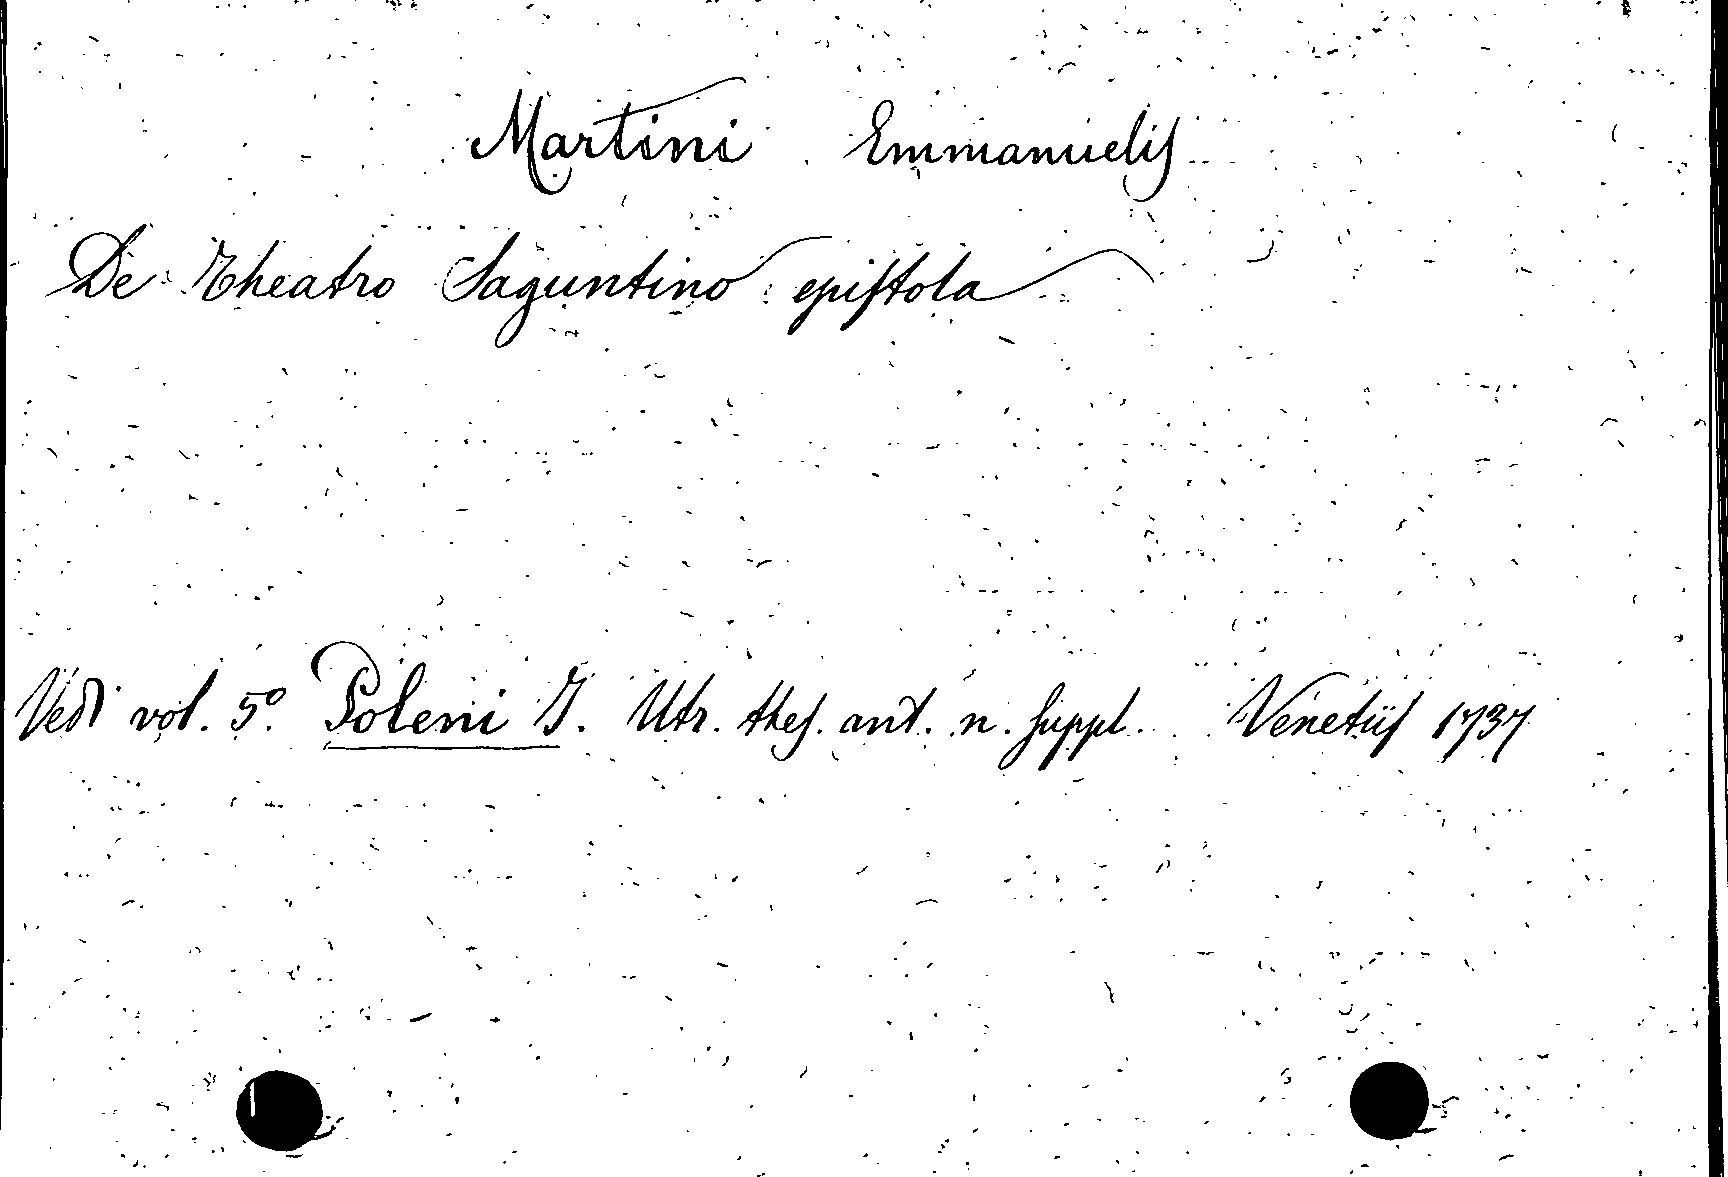 Martini Emmanuelis
De Theatro Saguntino epistola
Vedi vol. 5º. Poleni J. Utr. thes. ant. n. suppl. Venetiis 1737